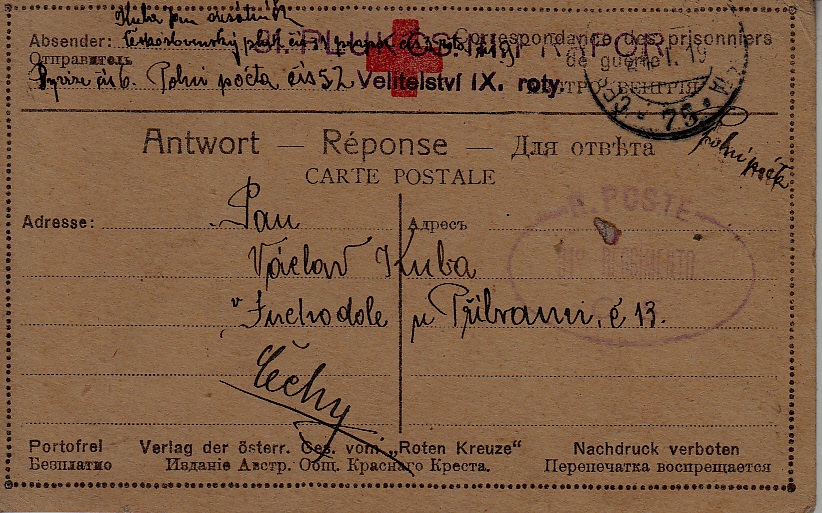 Kuba Jan
Absender: Československý pluk čís 31
Correspondance des prisonniers
Отправитель
de guerre
čís 6. Polní pošta čís 52 Velitelství IX. roty.
75
polní pošta
Antwort — Réponse — Для отвѣта
CARTE POSTALE
R. POSTE
Adresse: Pan
Адресъ
Václav Kuba
v Suchodole u Příbrami, č 13.
Čechy
Portofrei Verlag der österr. Ges. vom „Roten Kreuze“ Nachdruck verboten
Безплатно Изданіе Австр. Общ. Краснаго Креста. Перепечатка воспрещается